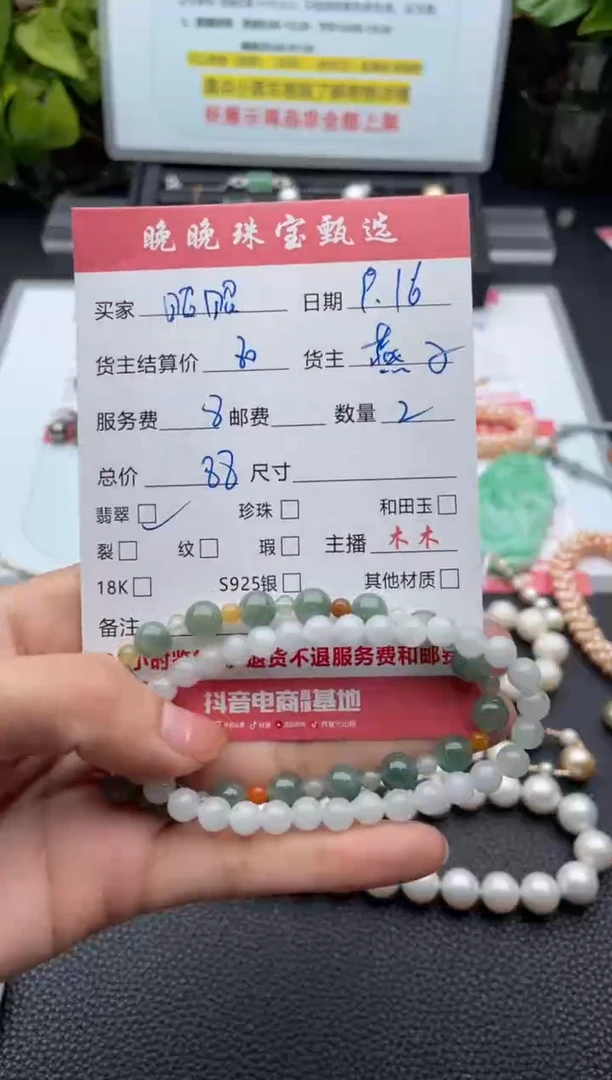 标展示商品非全额上架
晚晚珠宝甄选
买家 昭昭 日期 9.16
货主结算价 80 货主 燕子
服务费 8 邮费 数量 2
总价 88 尺寸
翡翠 珍珠 和田玉
裂 纹 瑕 主播 木木
18K S925银 其他材质
备注
退货不退服务费和邮费
抖音电商 基地